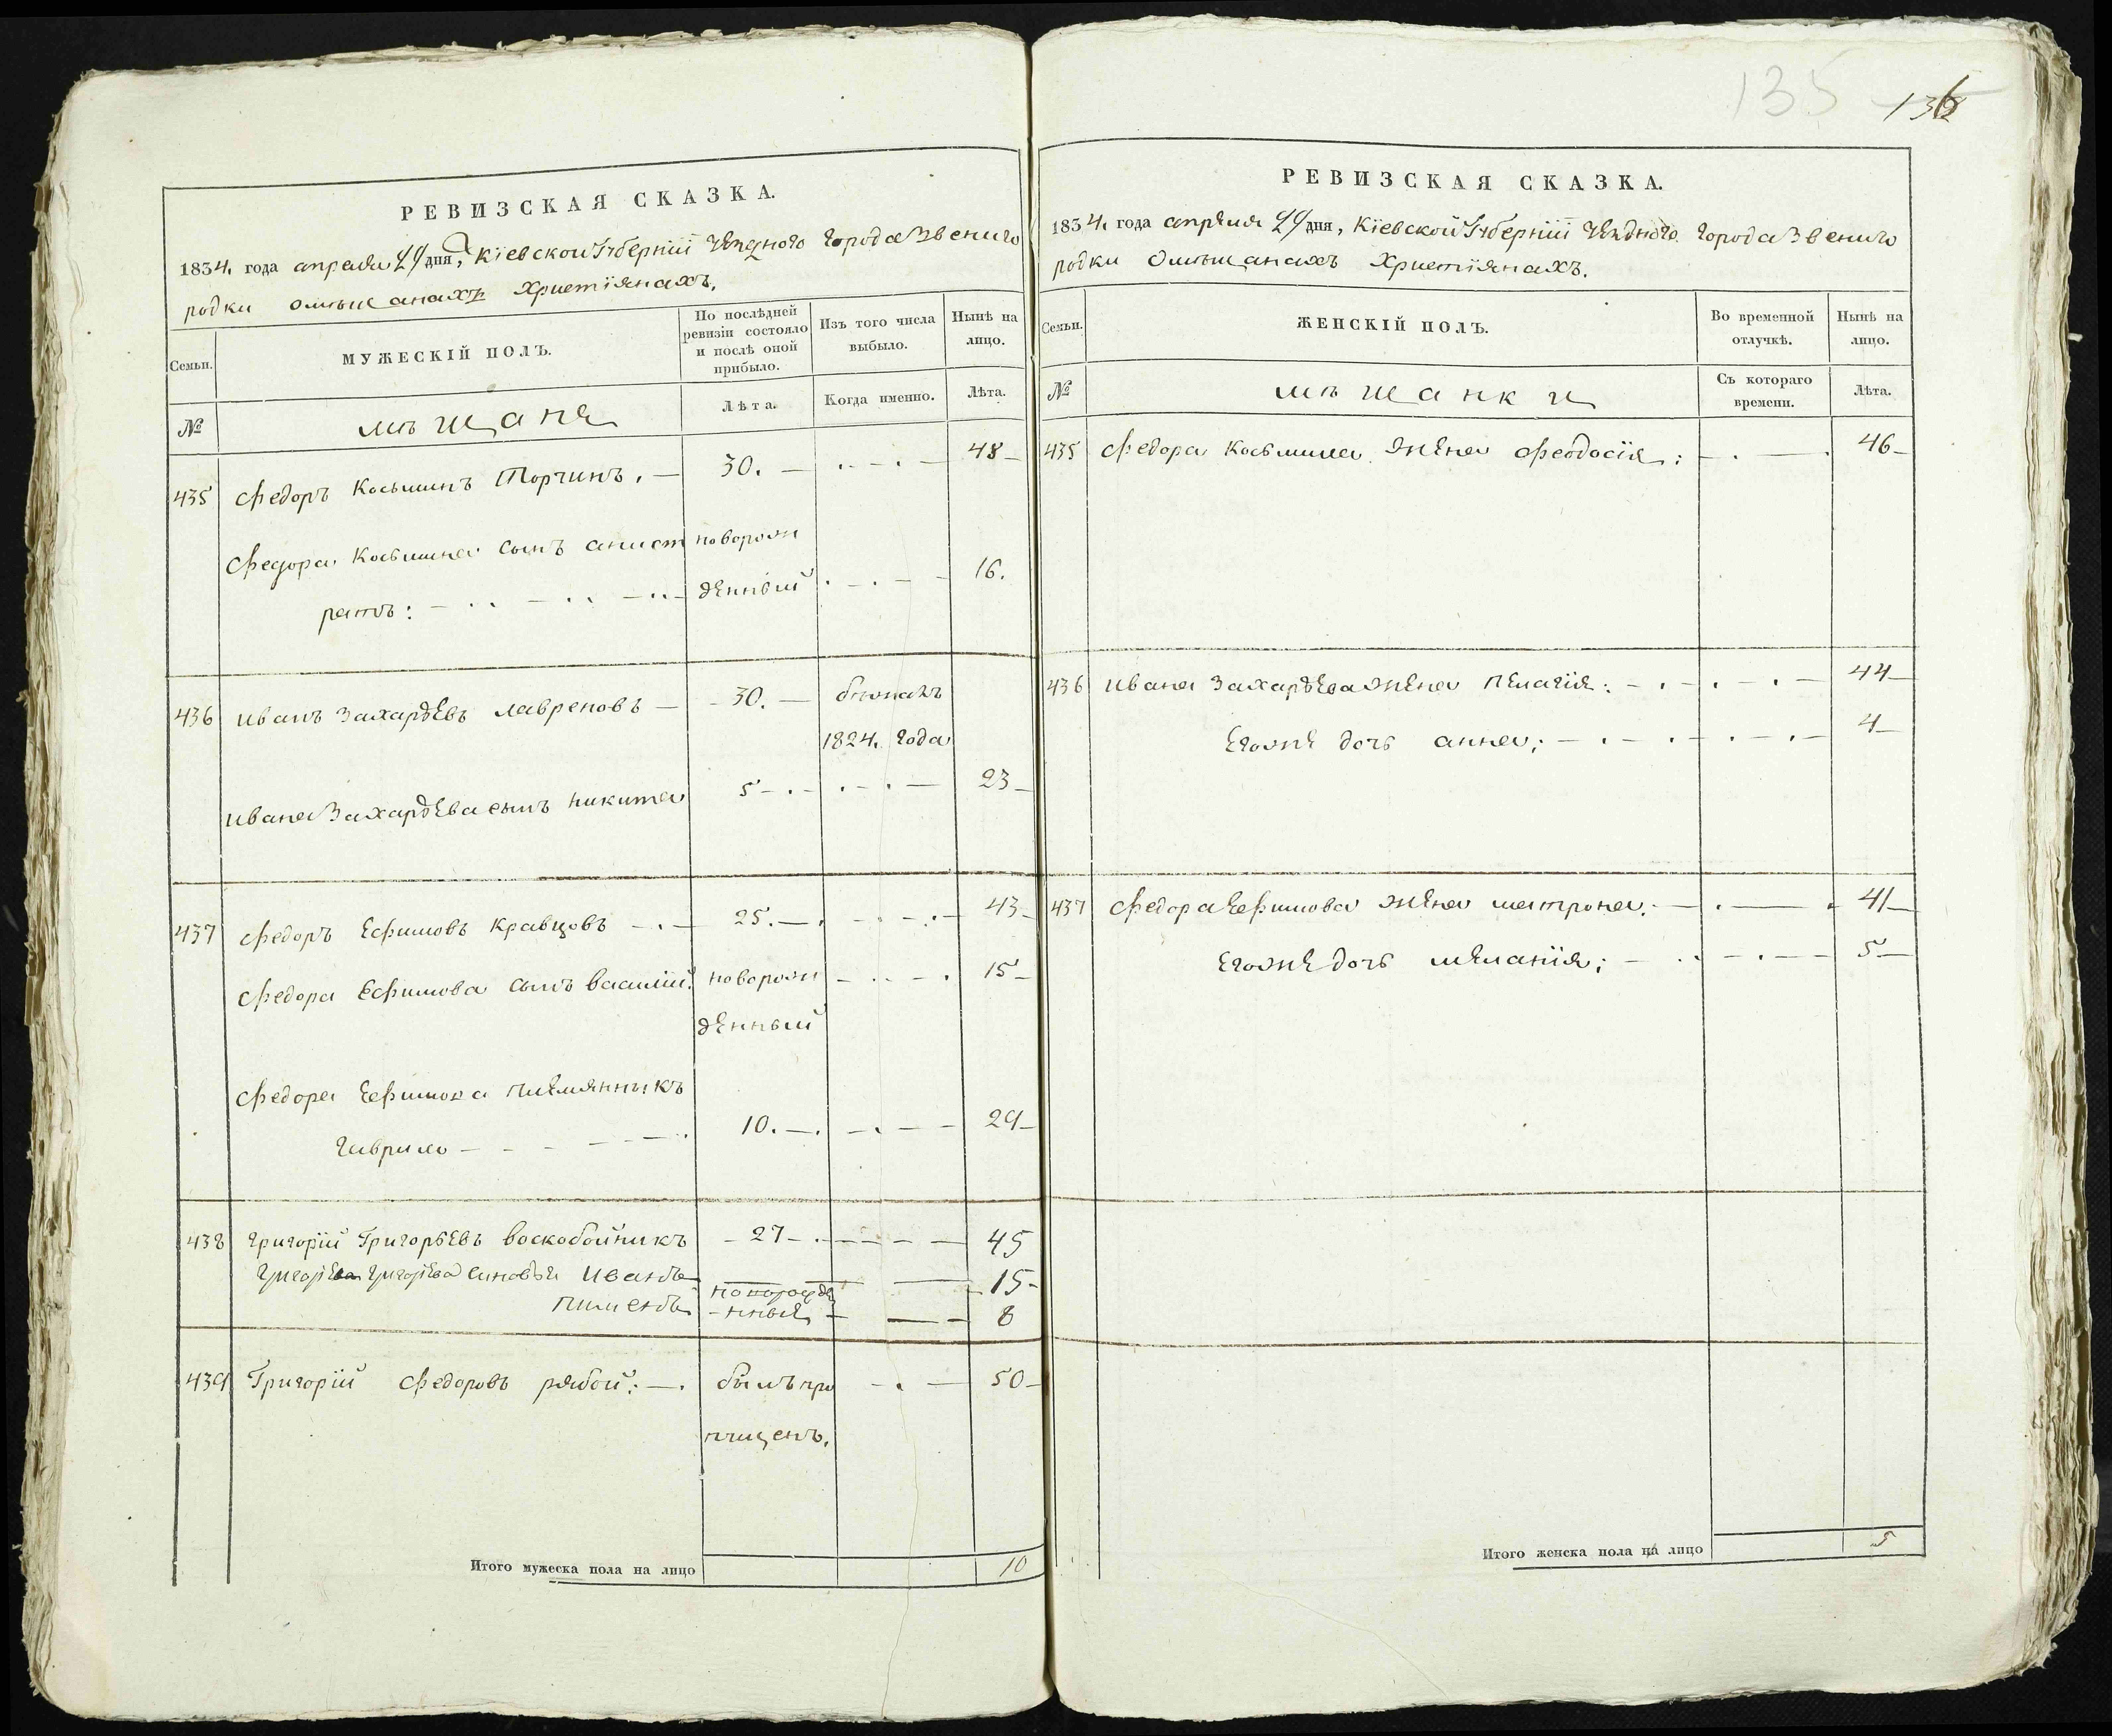 РЕВИЗСКАЯ СКАЗКА.
1834. года апреля 29 дня, Кіевской Губерніи уезднаго города Звениго
родки омѣщанахъ Христіянахъ.
Семьи. МУЖЕСКІЙ ПОЛЪ. По послѣдней ревизіи состояло и послѣ оной прибыло. Изъ того числа выбыло. Нынѣ на лицо.
№ мѣщане Лѣта. Когда именно. Лѣта.
435 Федоръ Косьминъ Торчинъ. 30. 48
Федора Косьмина сынъ анист новорож
ратъ: денный 16.
436 иванъ Захарьевъ лавреновъ 30. бѣжалъ
1824. года
ивана Захарьева сынъ никита 5 23
437 Федоръ Ефимовъ кравцовъ 25. 43
Федора Ефимова сынъ василій: новорож 15
денный
Федора Ефимова племянникъ
гаврило 10. 29
438 григорій Григорьевъ воскобойникъ 27 45
Григорьева синовья иванъ новорожде 15
пименъ нные 8
439 Григорій Федоровъ рябой: былъ про 50
пущенъ.
Итого мужеска пола на лицо 10
135 136
РЕВИЗСКАЯ СКАЗКА.
1834. года апреля 29 дня, Кіевской Губерніи уезднаго города Звениго
родки омѣщанахъ Христіянахъ.
Семьи. ЖЕНСКІЙ ПОЛЪ. Во временной отлучкѣ. Нынѣ на лицо.
№ мѣщанки Съ котораго времени. Лѣта.
435 Федора Косьмина жена Феодосія: 46
436 ивана Захарьева жена пелагія: 44
егоже дочь анна; 4
437 Федора Ефимова жена матрона: 41
егоже дочь меланія; 5
Итого женска пола на лицо 5